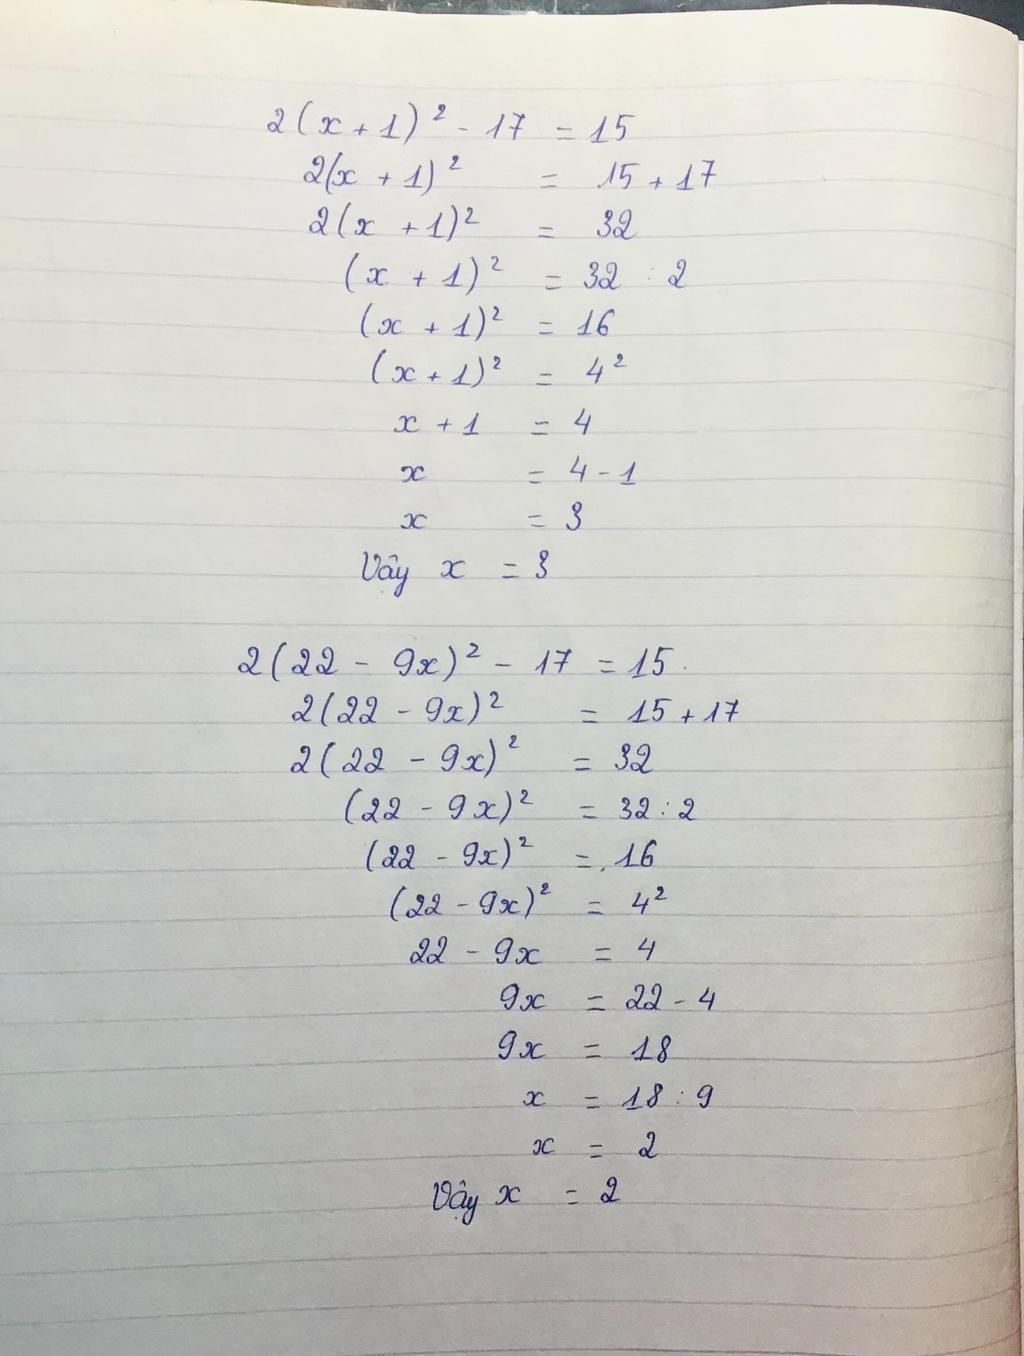 2(x + 1)² - 17 = 15
2(x + 1)² = 15 + 17
2(x + 1)² = 32
(x + 1)² = 32 : 2
(x + 1)² = 16
(x + 1)² = 4²
x + 1 = 4
x = 4 - 1
x = 3
Vậy x = 3
2(22 - 9x)² - 17 = 15
2(22 - 9x)² = 15 + 17
2(22 - 9x)² = 32
(22 - 9x)² = 32 : 2
(22 - 9x)² = 16
(22 - 9x)² = 4²
22 - 9x = 4
9x = 22 - 4
9x = 18
x = 18 : 9
x = 2
Vậy x = 2